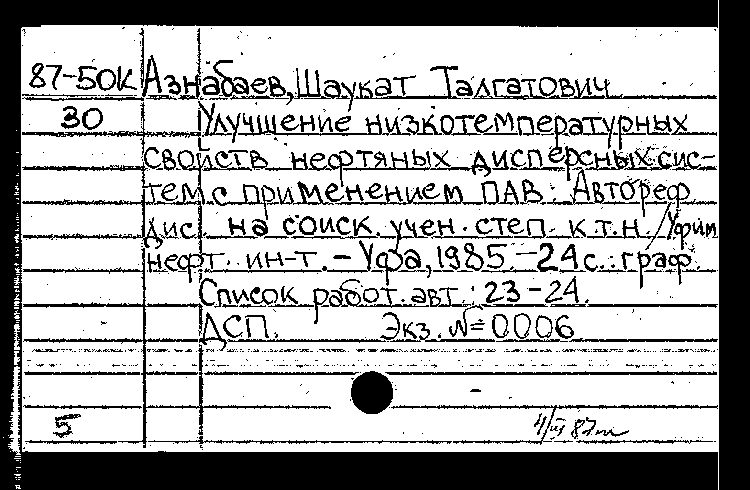 87-50К Азнабаев, Шаукат Талгатович
30 Улучшение низкотемпературных
свойств нефтяных дисперсных сис-
тем с применением ПАВ: Автореф.
дис. на соиск. учен. степ. к.т.н. /Уфим.
нефт. ин-т. - Уфа, 1985. - 24 с.: граф.
Список работ. авт.: 23-24.
ДСП. Экз. №=0006
5